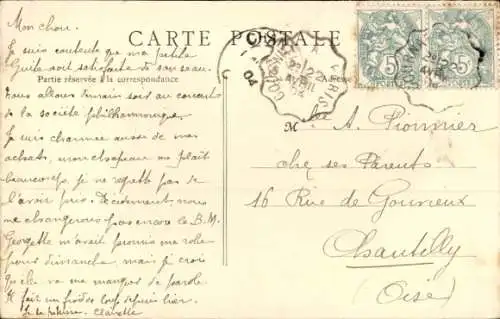 Mon chou.
CARTE POSTALE
Je suis contente que ma petite
Guite soit satisfaite de san seau.
Partie réservée à la correspondance
Nous allons demain soir au concert
de la société philharmonique.
Je suis charmée aussi de mes
achats, mon chapeau me plaît
beaucoup je ne regrette pas de
l'avoir pris. Décidément, nous
ne changerons pas encore la B.M.
Georgette m'avait promis une robe
pour dimanche mais je crois
qu'elle va me manquer de parole.
Il fait un froid de loup depuis hier.
Je te Claudette
5
5
22
AVRIL
04
04
M A. Pionnier
chez ses Parents
16 Rue de Gouvieux
Chantilly
(Oise)